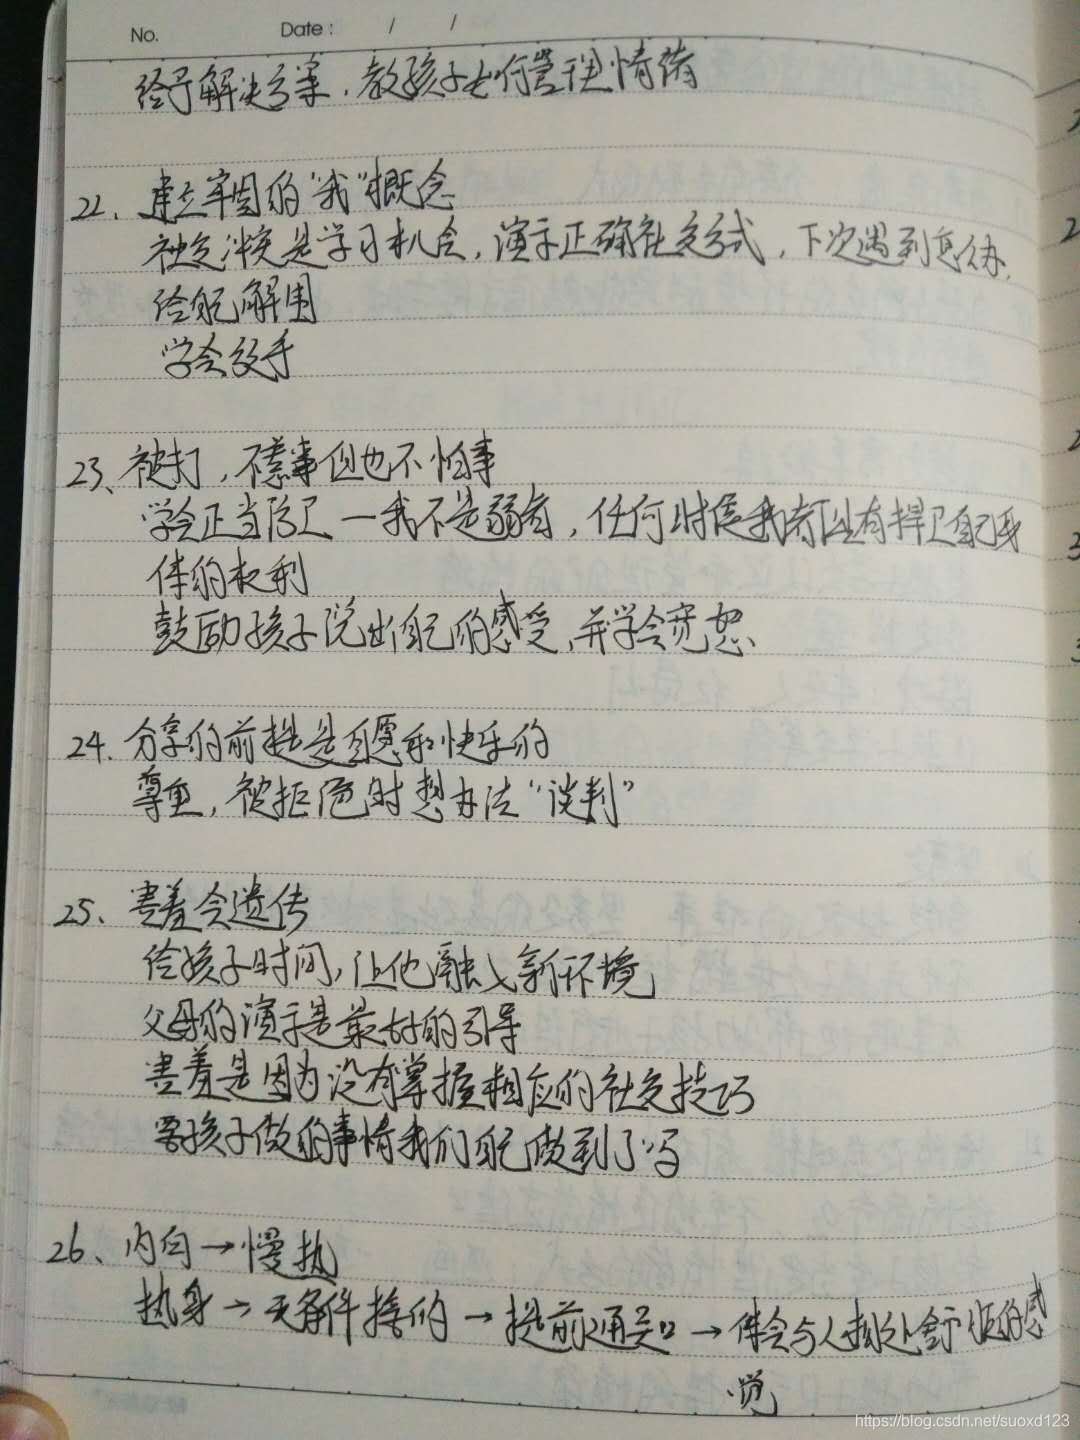 No.
Date: / /
给予解决方案，教孩子如何管理情绪
22、建立牢固的“我”概念
社交冲突是学习机会，演示正确社交方式，下次遇到怎么办，
给自己解围
学会放手
23、被打，不惹事但也不怕事
学会正当防卫—我不是弱者，任何时候我都有捍卫自己身
体的权利
鼓励孩子说出自己的感受，并学会宽恕
24、分享的前提是自愿和快乐的
尊重，被拒绝时想办法“谈判”
25、害羞会遗传
给孩子时间，让他融入新环境
父母的演示是最好的引导
害羞是因为没有掌握相应的社交技巧
要孩子做的事情我们自己做到了吗
26、内向→慢热
热身→无条件接纳→提前通知→体会与人相处舒服的感
觉
https://blog.csdn.net/suoxd123